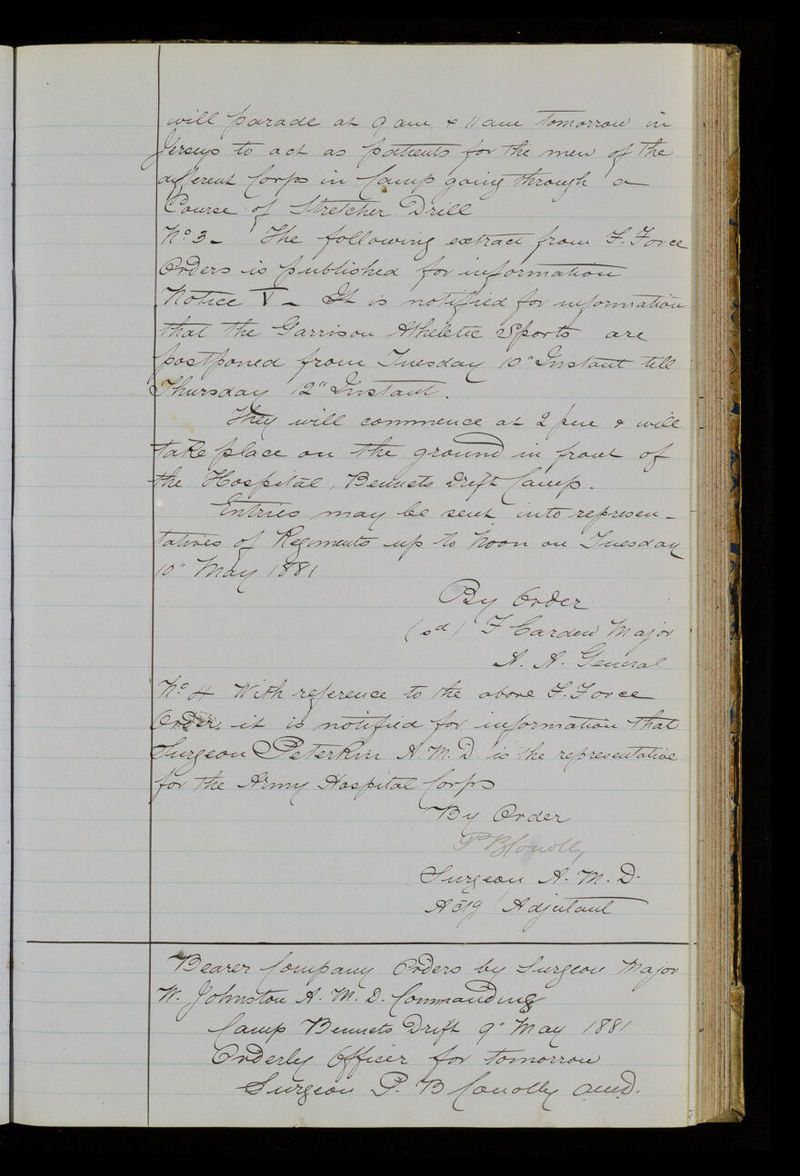 will parade at 9 am & 11 am tomorrow in
Jerseys to act as patients for the men of the
different Corps in Camp going through a
Course of Stretcher Drill
No. 3 - The following extract from F. Force
Orders is published for information
Notice V - It is notified for information
that the Garrison Atheletic Sports are
postponed from Tuesday 10" Instant till
Thursday 12" Instant.
They will commence at 2 pm & will
take place on the ground in front of
the Hospital, Bennets Drift Camp.
Entries may be sent into represen-
tatives of Regiments up to Noon on Tuesday
10" May 1881
By Order
(sd) F Carden Major
A. A. General
No. 4 With reference to the above F. Force
Order, it is notified for information that
Surgeon Peterkin A. M. D. is the representative
for the Army Hospital Corps
By Order
P B Conolly
Surgeon A. M. D.
Actg Adjutant
Bearer Company Orders by Surgeon Major
W. Johnston A. M. D. Commanding
Camp Bennets Drift 9" May 1881
Orderly Officer for tomorrow
Surgeon P. B Conolly amd.